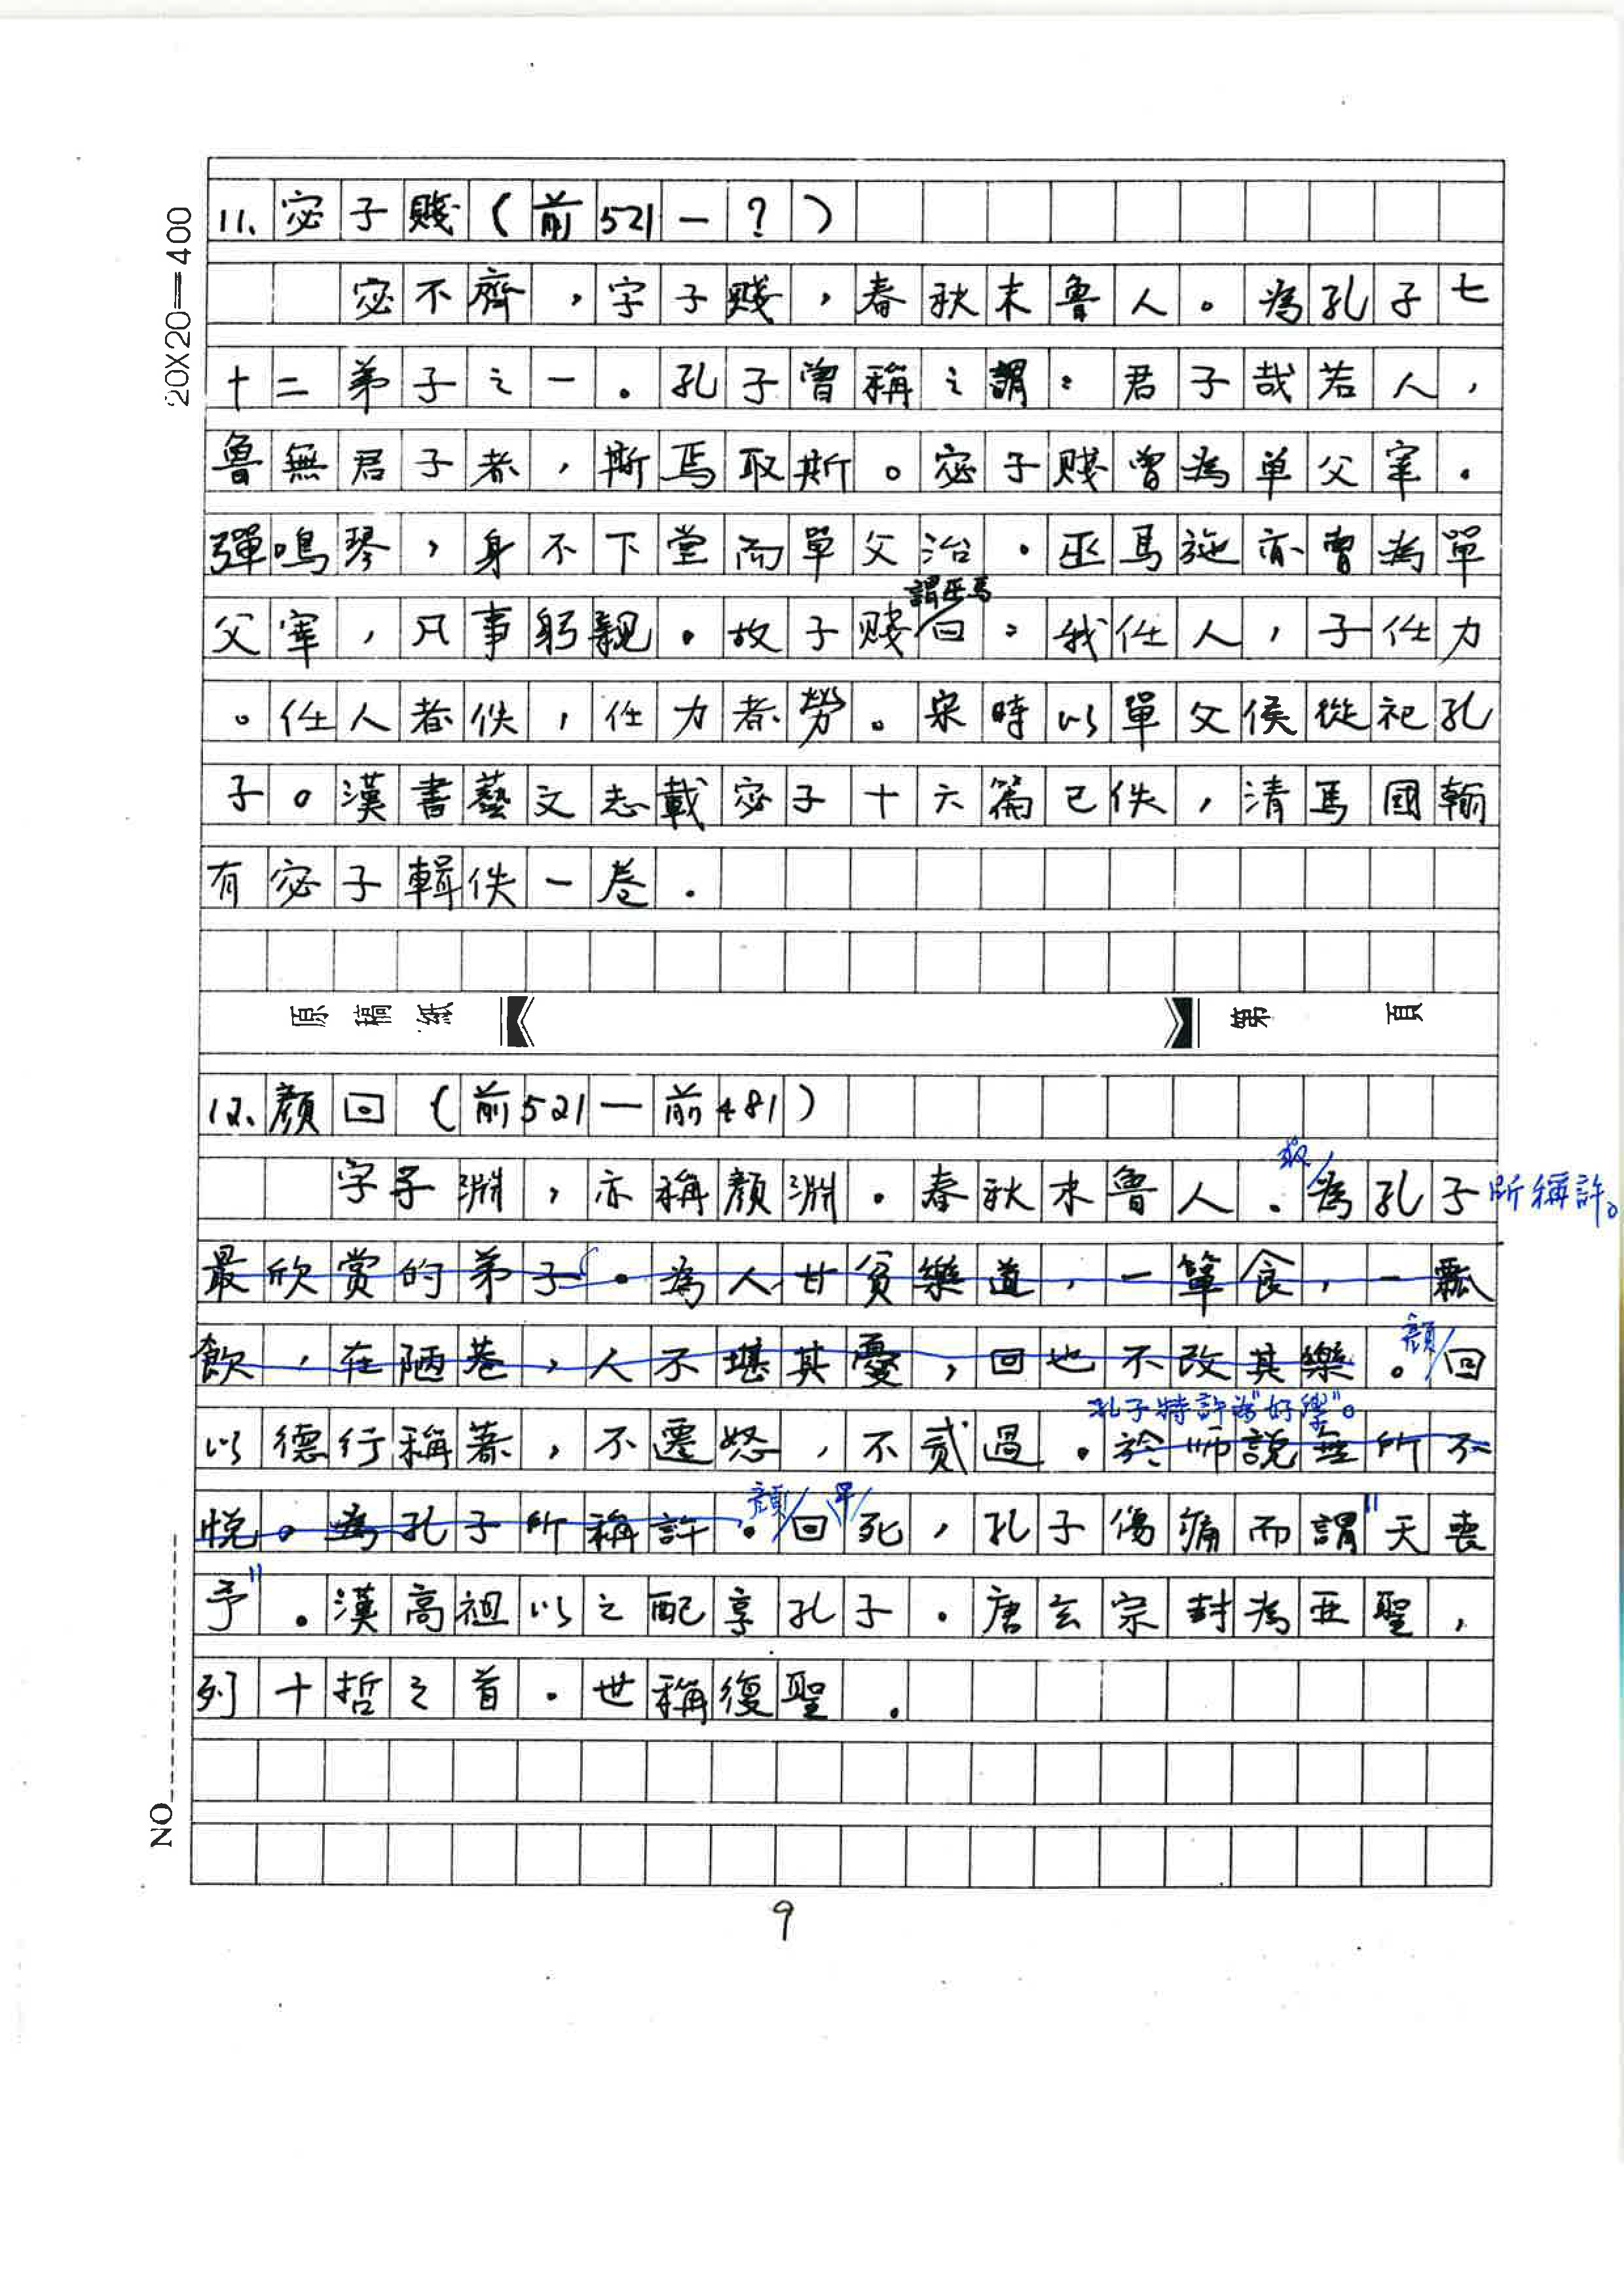 20X20=400
11.宓子賤(前521-?)
宓不齊，字子賤，春秋末魯人。為孔子七
十二弟子之一。孔子曾稱之謂：君子哉若人，
魯無君子者，斯焉取斯。宓子賤曾為单父宰。
彈鳴琴，身不下堂而單父治。巫馬施亦曾為單
謂巫馬
父宰，凡事躬親。故子賤曰：我任人，子任力
。任人者佚，任力者勞。宋時以單父侯從祀孔
子。漢書藝文志載宓子十六篇已佚，清馬國翰
有宓子輯佚一卷。
原稿紙 第 頁
12.顏回(前521-前481)
字子淵，亦稱顏淵。春秋末魯人。為孔子所稱許。
最欣赏的弟子。為人甘貧樂道，一簞食，一瓢
顏
飲，在陋巷，人不堪其憂，回也不改其樂。回
孔子特許為"好學"。
以德行稱著，不遷怒，不貳過。於师説無所不
顏 早
悅。為孔子所稱許。回死，孔子傷痛而謂"天喪
予"。漢高祖以之配享孔子。唐玄宗封為亞聖，
列十哲之首。世稱復聖。
NO
9